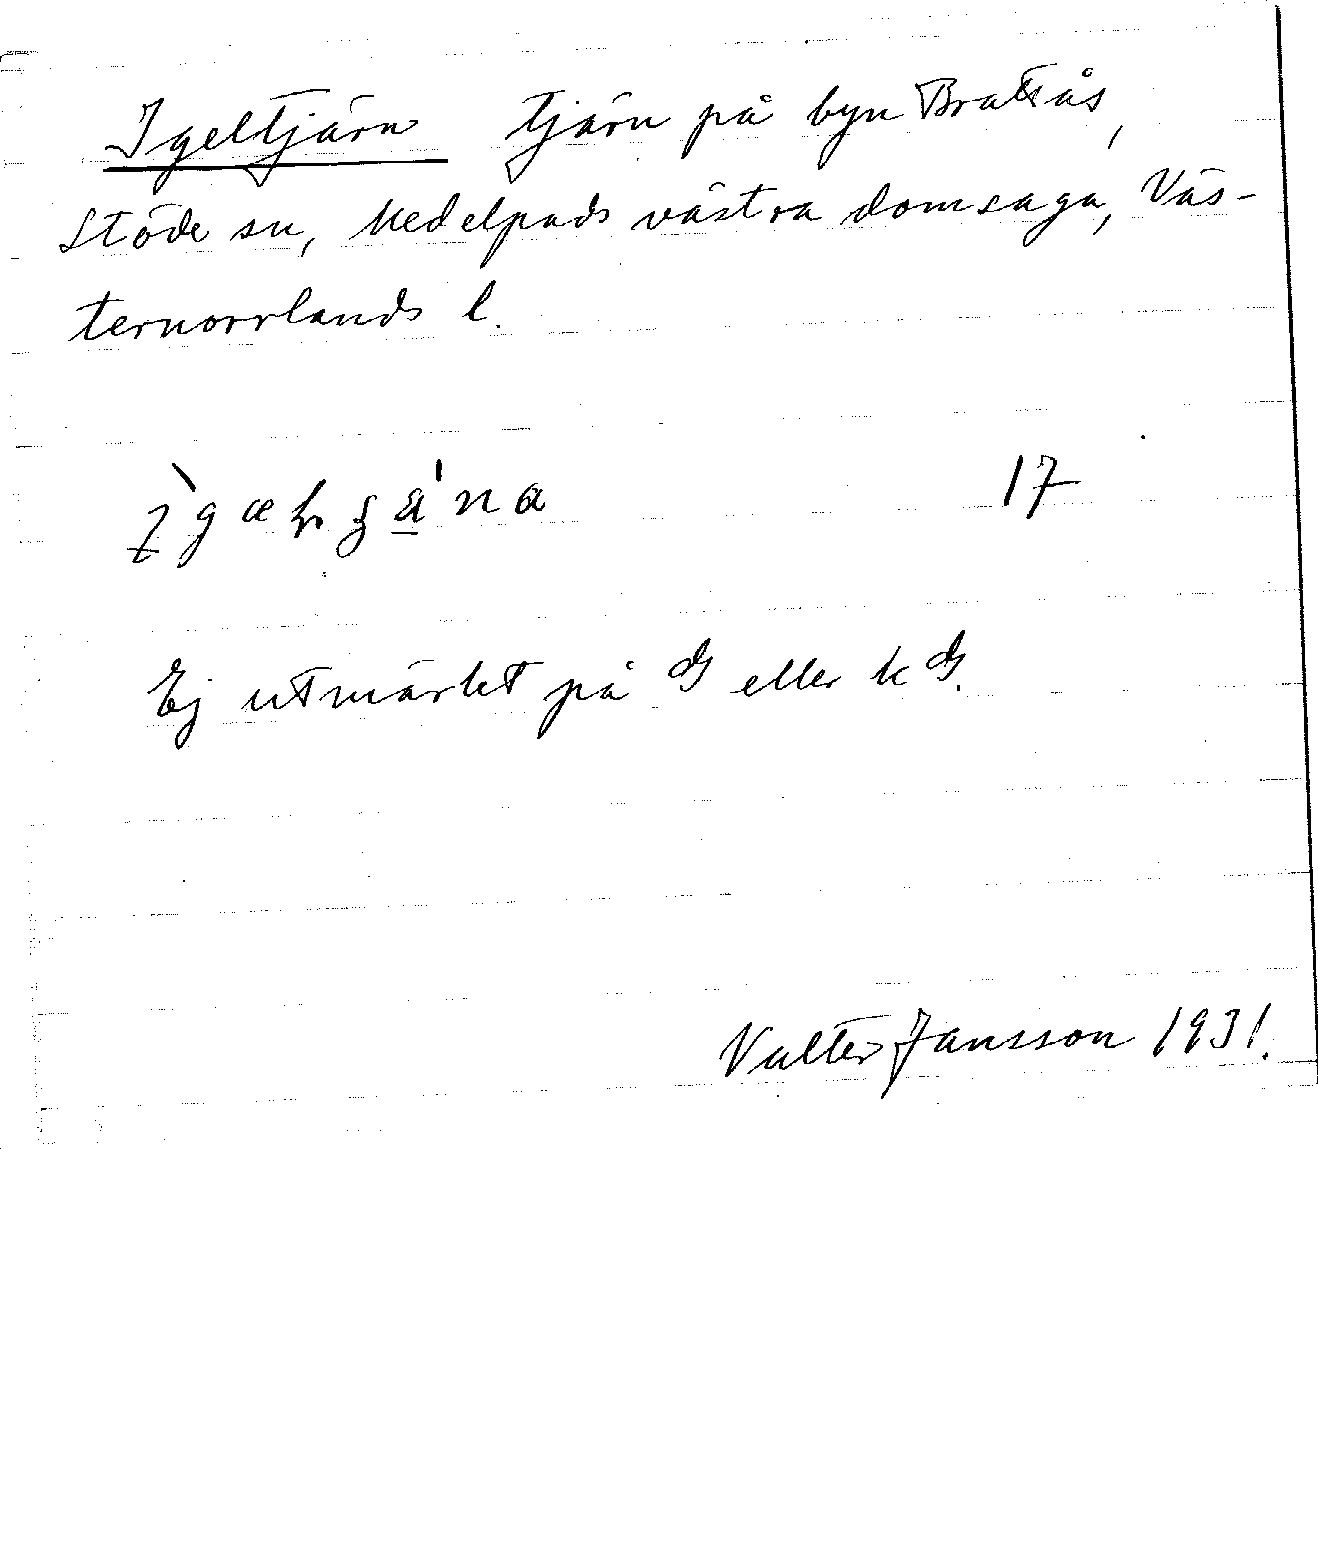 Igeltjärn tjärn på byn Brattsås,
Stöde sn, Medelpads västra domsaga, Väs-
ternorrlands l.
17
Ej utmärkt på eller k
Valter Jansson 1931.